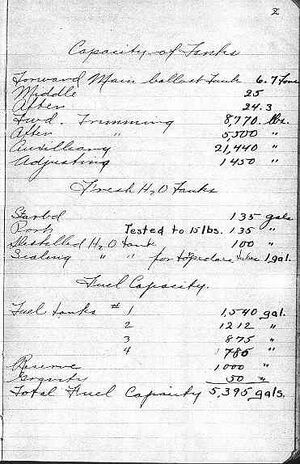 2
Capacity of Tanks
Forward Main ballast tank 6.7 Tons
Middle 25
After 24.3
Fwd. Trimming 8,770 lbs.
After " 5,500 "
Auxilliary 21,440 "
Adjusting 1450 "
Fresh H2O Tanks
Starb'd 135 gals
Port Tested to 15 lbs. 135 "
Distilled H2O tank 100 "
" " for torpedoes 1 gal.
Fuel Capacity.
Fuel tanks # 1 1,540 gal.
2 1212 "
3 875 "
4 785 "
Reserve 1000 "
Gravity 50 "
Total Fuel Capacity 5,395 gals.